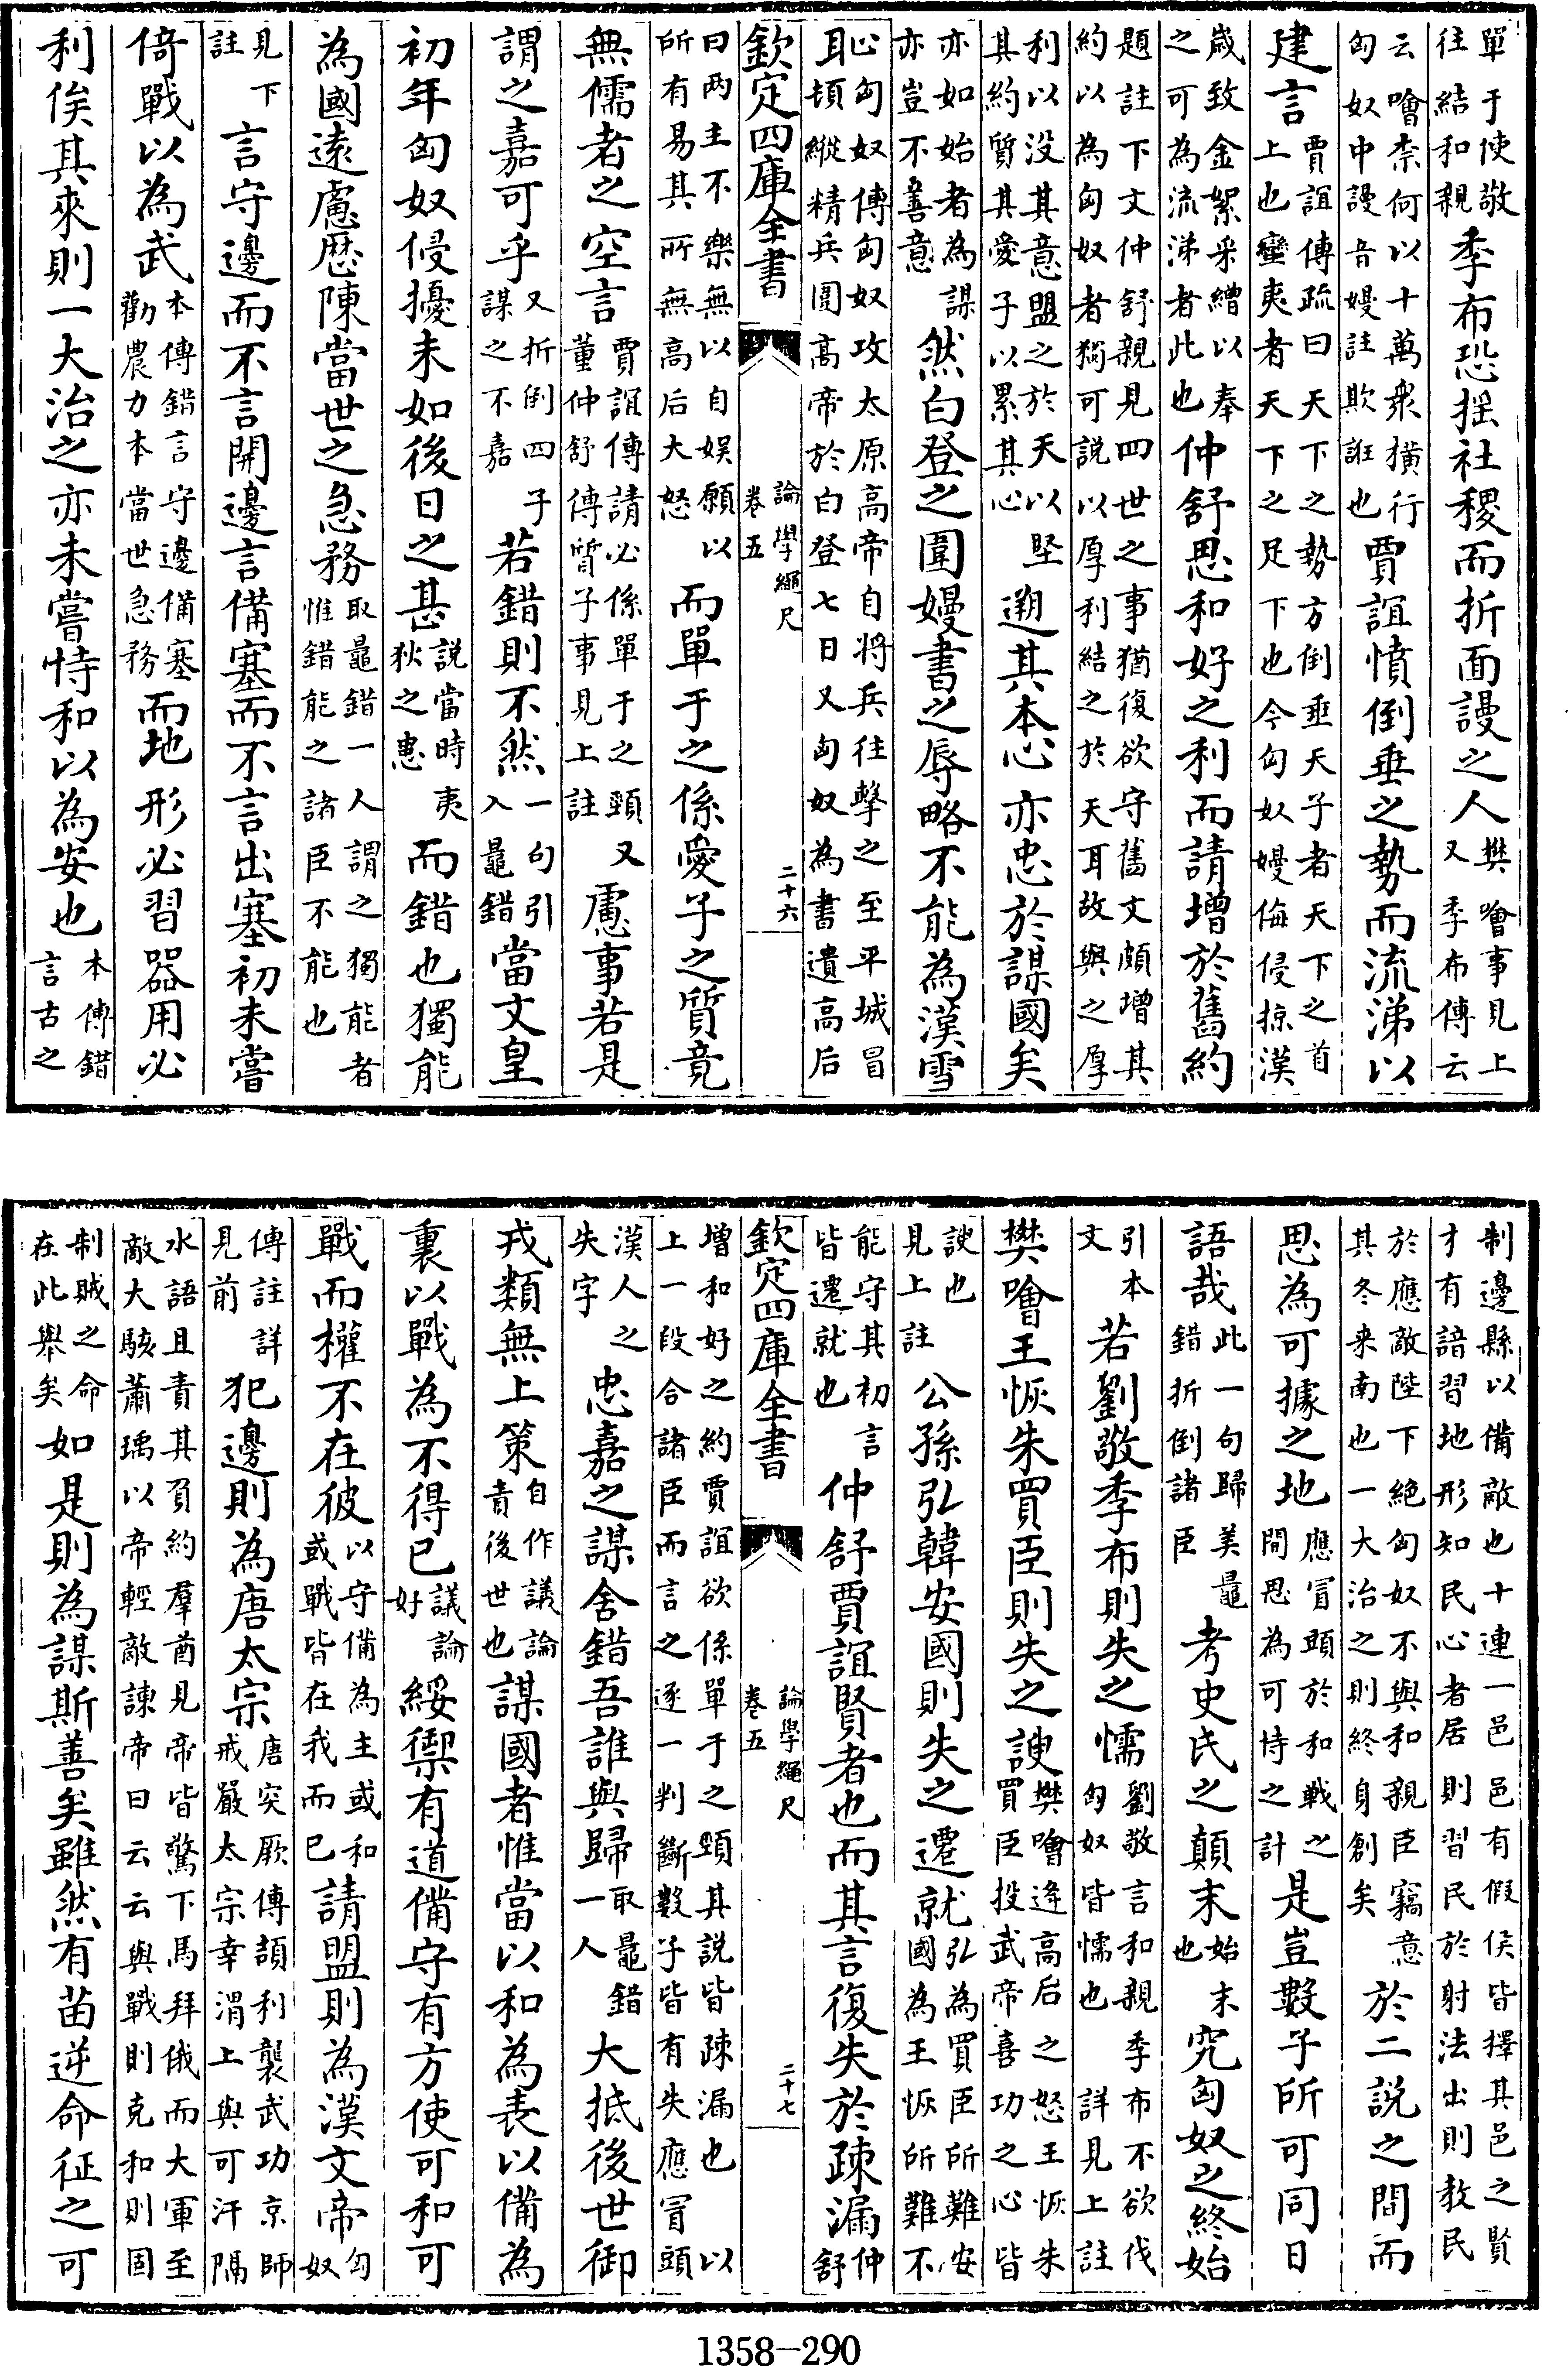 單于使敬往結和親季布恐揺社稷而折面謾之人樊噲事見上又季布傳云
云噲柰何以十萬衆横行匈奴中謾音嫚註欺誑也賈誼憤倒垂之勢而流涕以
建言賈誼傳疏曰天下之勢方倒垂天子者天下之首上也蠻夷者天下之足下也今匈奴嫚侮侵掠漢
歲致金絮采繒以奉之可為流涕者此也仲舒思和好之利而請增於舊約
題註下文仲舒親見四世之事猶復欲守舊文頗增其約以為匈奴者獨可説以厚利結之於天耳故與之厚
利以没其意盟之於天以堅其約質其愛子以累其心遡其本心亦忠於謀國矣
亦如始者為謀亦豈不善意然白登之圍嫚書之辱略不能為漢雪
耻匈奴傳匈奴攻太原高帝自將兵往擊之至平城冒頓縱精兵圍高帝於白登七日又匈奴為書遺高后
欽定四庫全書 論學繩尺 卷五 二十六
曰两主不樂無以自娱願以所有易其所無高后大怒而單于之係愛子之質竟
無儒者之空言賈誼傳請必係單于之頸又董仲舒傳質子事見上註慮事若是
謂之嘉可乎又折倒四子謀之不嘉若錯則不然一句引入鼂錯當文皇
初年匈奴侵擾未如後日之甚説當時夷狄之患而錯也獨能
為國遠慮厯陳當世之急務取鼂錯一人謂之獨能者惟錯能之諸臣不能也
見下註言守邊而不言開邊言備塞而不言出塞初未嘗
倚戰以為武本傳錯言守邊備塞勸農力本當世急務而地形必習器用必
利俟其來則一大治之亦未嘗恃和以為安也本傳錯言古之
制邊縣以備敵也十連一邑邑有假侯皆擇其邑之賢才有諳習地形知民心者居則習民於射法出則教民
於應敵陛下絶匈奴不與和親臣竊意其冬来南也一大治之則終身創矣於二説之間而
思為可據之地應冒頭於和戰之間思為可恃之計是豈數子所可同日
語哉此一句歸美鼂錯折倒諸臣考史氏之顛末始末也究匈奴之終始
引本文若劉敬季布則失之懦劉敬言和親季布不欲伐匈奴皆懦也詳見上註
樊噲王恢朱買臣則失之諛樊噲逢高后之怒王恢朱買臣投武帝喜功之心皆
諛也見上註公孫弘韓安國則失之遷就弘為買臣所難安國為王恢所難不
能守其初言皆遷就也仲舒賈誼賢者也而其言復失於疎漏仲舒
欽定四庫全書 論學繩尺 卷五 二十七
增和好之約賈誼欲係單于之頸其説皆疎漏也以上一段合諸臣而言之逐一判斷數子皆有失應冒頭
漢人之失字忠嘉之謀舍錯吾誰與歸取鼂錯一人大抵後世御
戎類無上策自作議論責後世也謀國者惟當以和為表以備為
裏以戰為不得已議論好綏禦有道備守有方使可和可
戰而權不在彼以守備為主或和或戰皆在我而已請盟則為漢文帝匈奴
傳註詳見前犯邊則為唐太宗唐突厥傳頡利襲武功京師戒嚴太宗幸渭上與可汗隔
水語且責其負約羣酋見帝皆驚下馬拜俄而大軍至敵大駭蕭瑀以帝輕敵諫帝曰云云與戰則克和則固
制賊之命在此舉矣如是則為謀斯善矣雖然有苗逆命征之可
1358-290